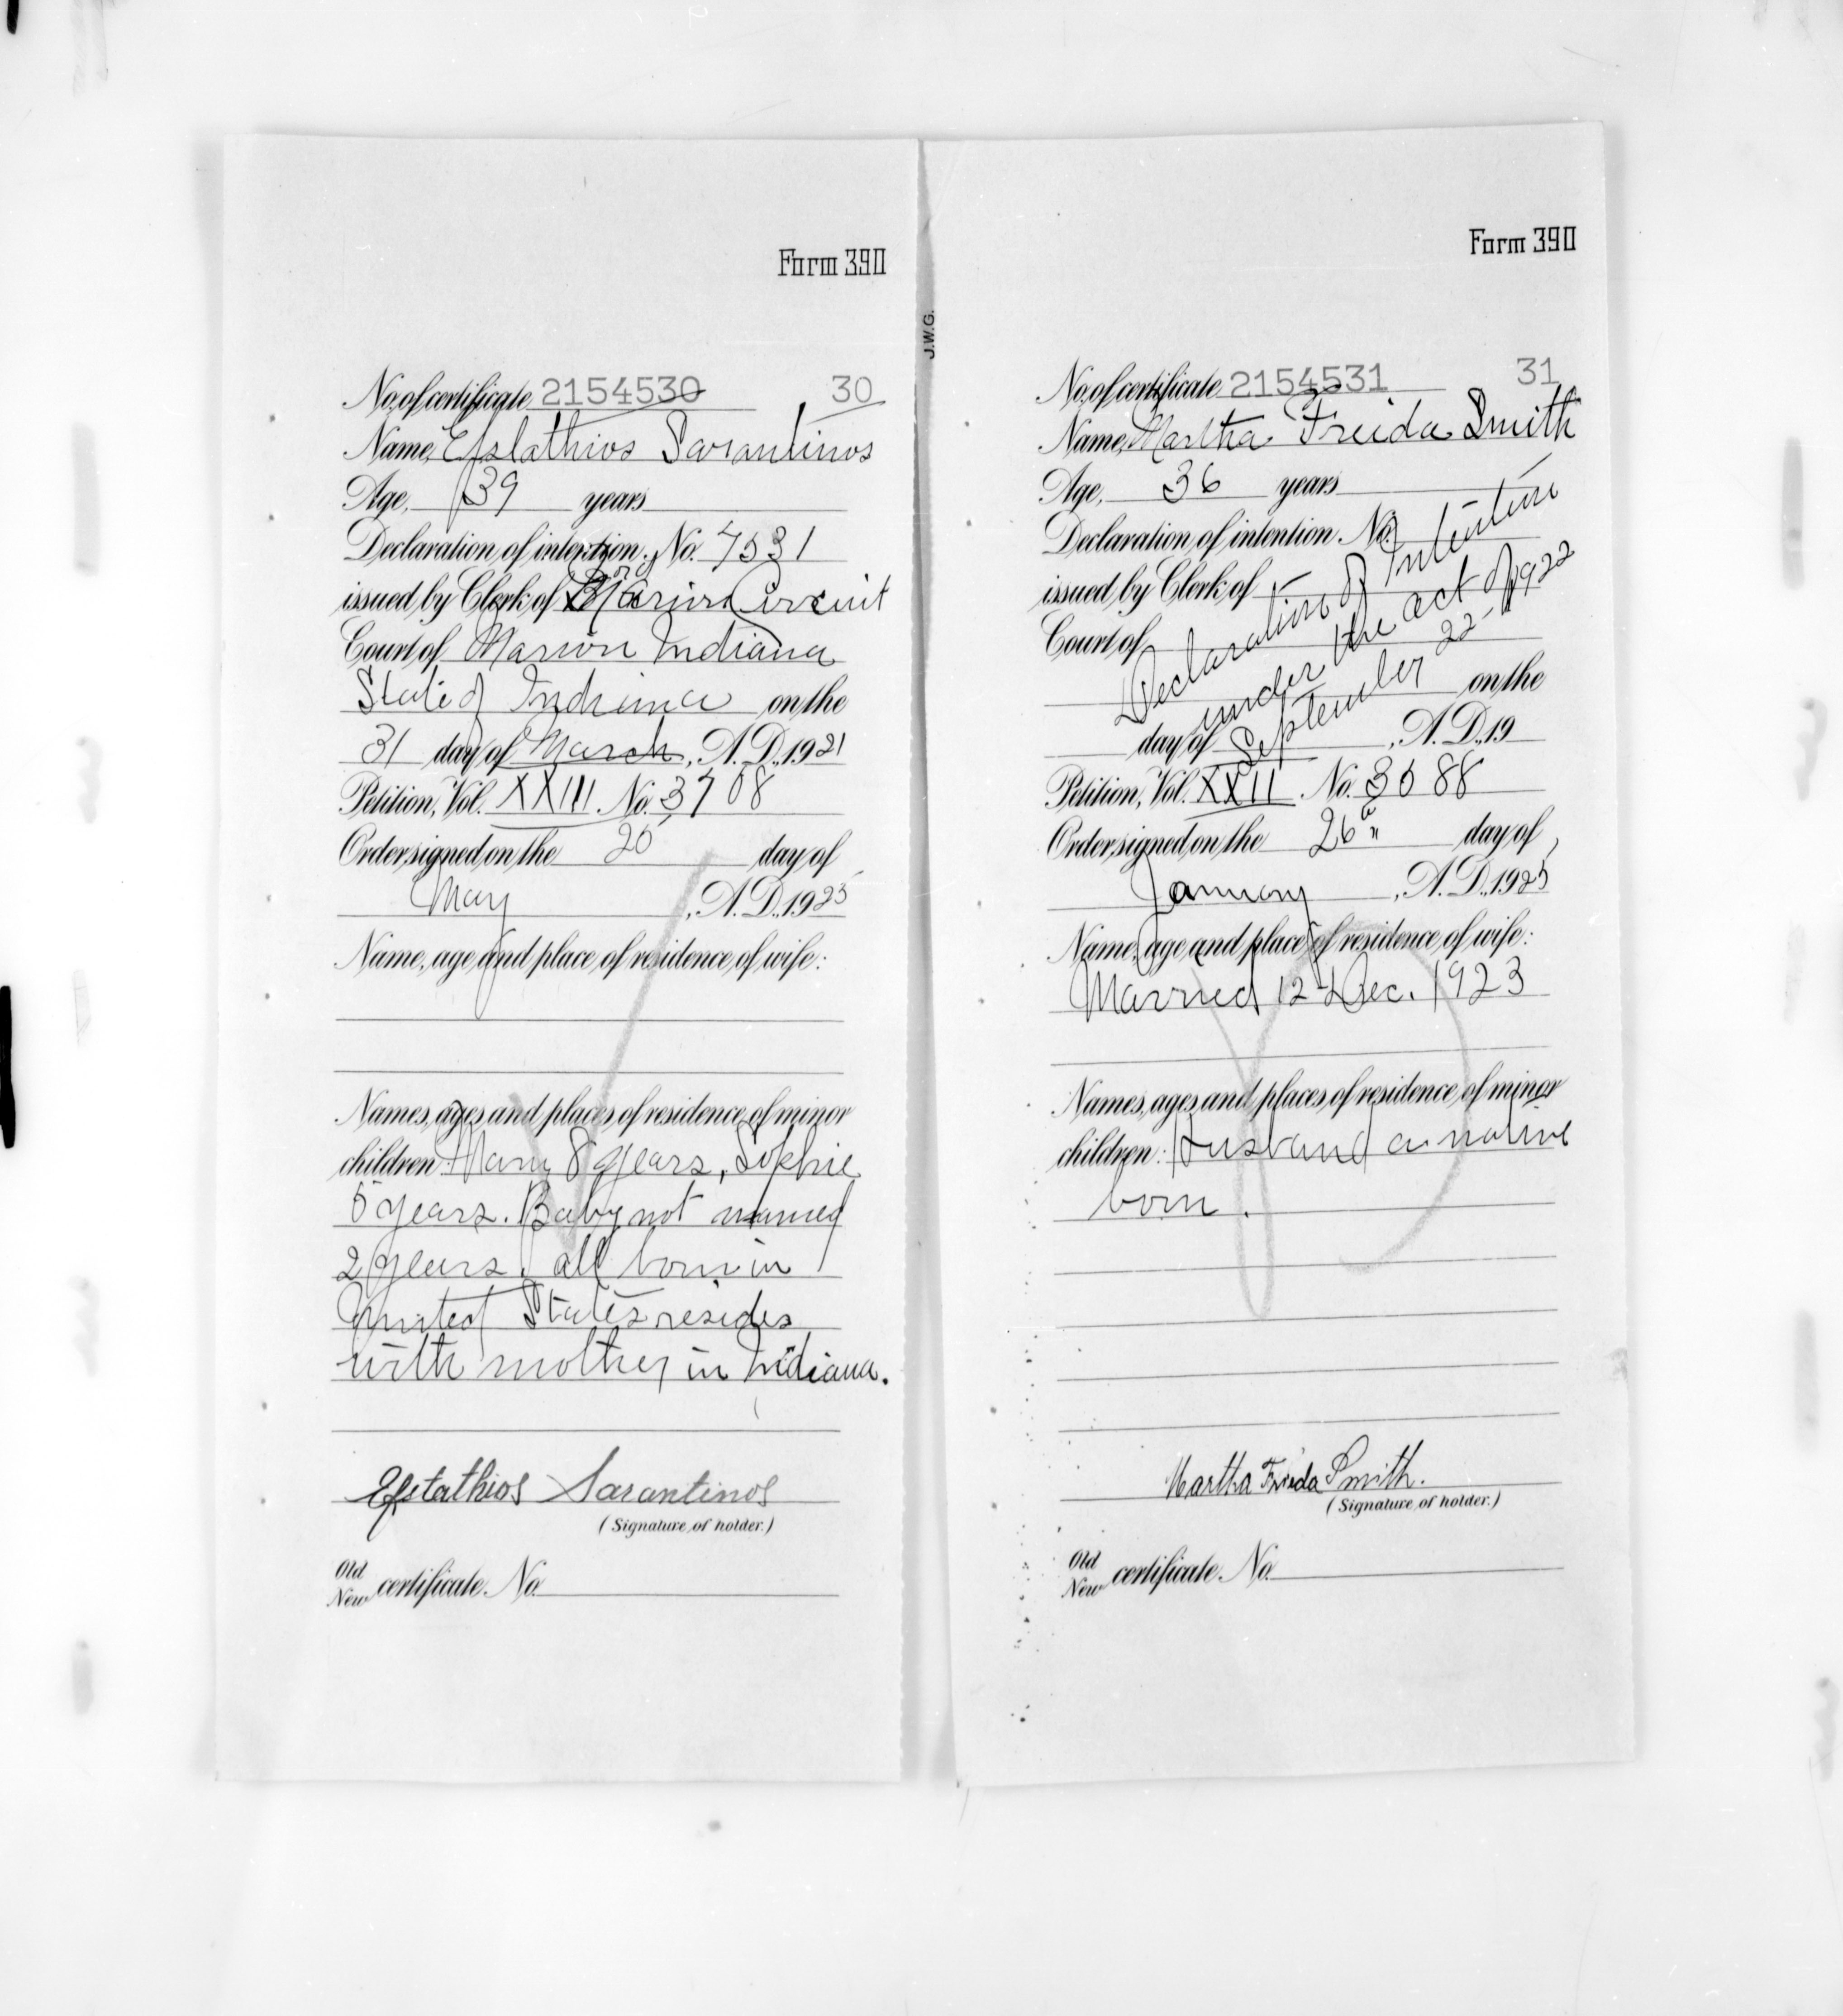 Form 390
No. of certificate 2154530 30
Name, Efstathios Sarantinos
Age, 39 years
Declaration of intention, No. 7531
issued by Clerk of Marion Circuit
Court of Marion Indiana
State of Indiana on the
31 day of March, A. D., 1921
Petition, Vol. XXIII No. 3708
Order signed on the 20 day of
May, A. D., 1925
Name, age and place of residence of wife:
Names, ages and places of residence of minor
children: Mary 8 years, Sophie
5 years. Baby not named
2 years. all born in
United States resides
with mother in Indiana.
Efstathios Sarantinos
(Signature of holder.)
Old
New certificate No.
J.W.G.
Form 390
No. of certificate 2154531 31
Name, Martha Freida Smith
Age, 36 years
Declaration of intention No.
issued by Clerk of
Court of
on the
day of , A. D., 19
Declaration of Intention
under the act of
September 22 - 1922
Petition, Vol. XXII. No. 3688
Order signed on the 26th day of
January, A. D., 1925
Name, age and place of residence of wife:
Married 12 Dec. 1923
Names, ages and places of residence of minor
children: Husband a native
born.
Martha Frieda Smith.
(Signature of holder.)
Old
New certificate No.